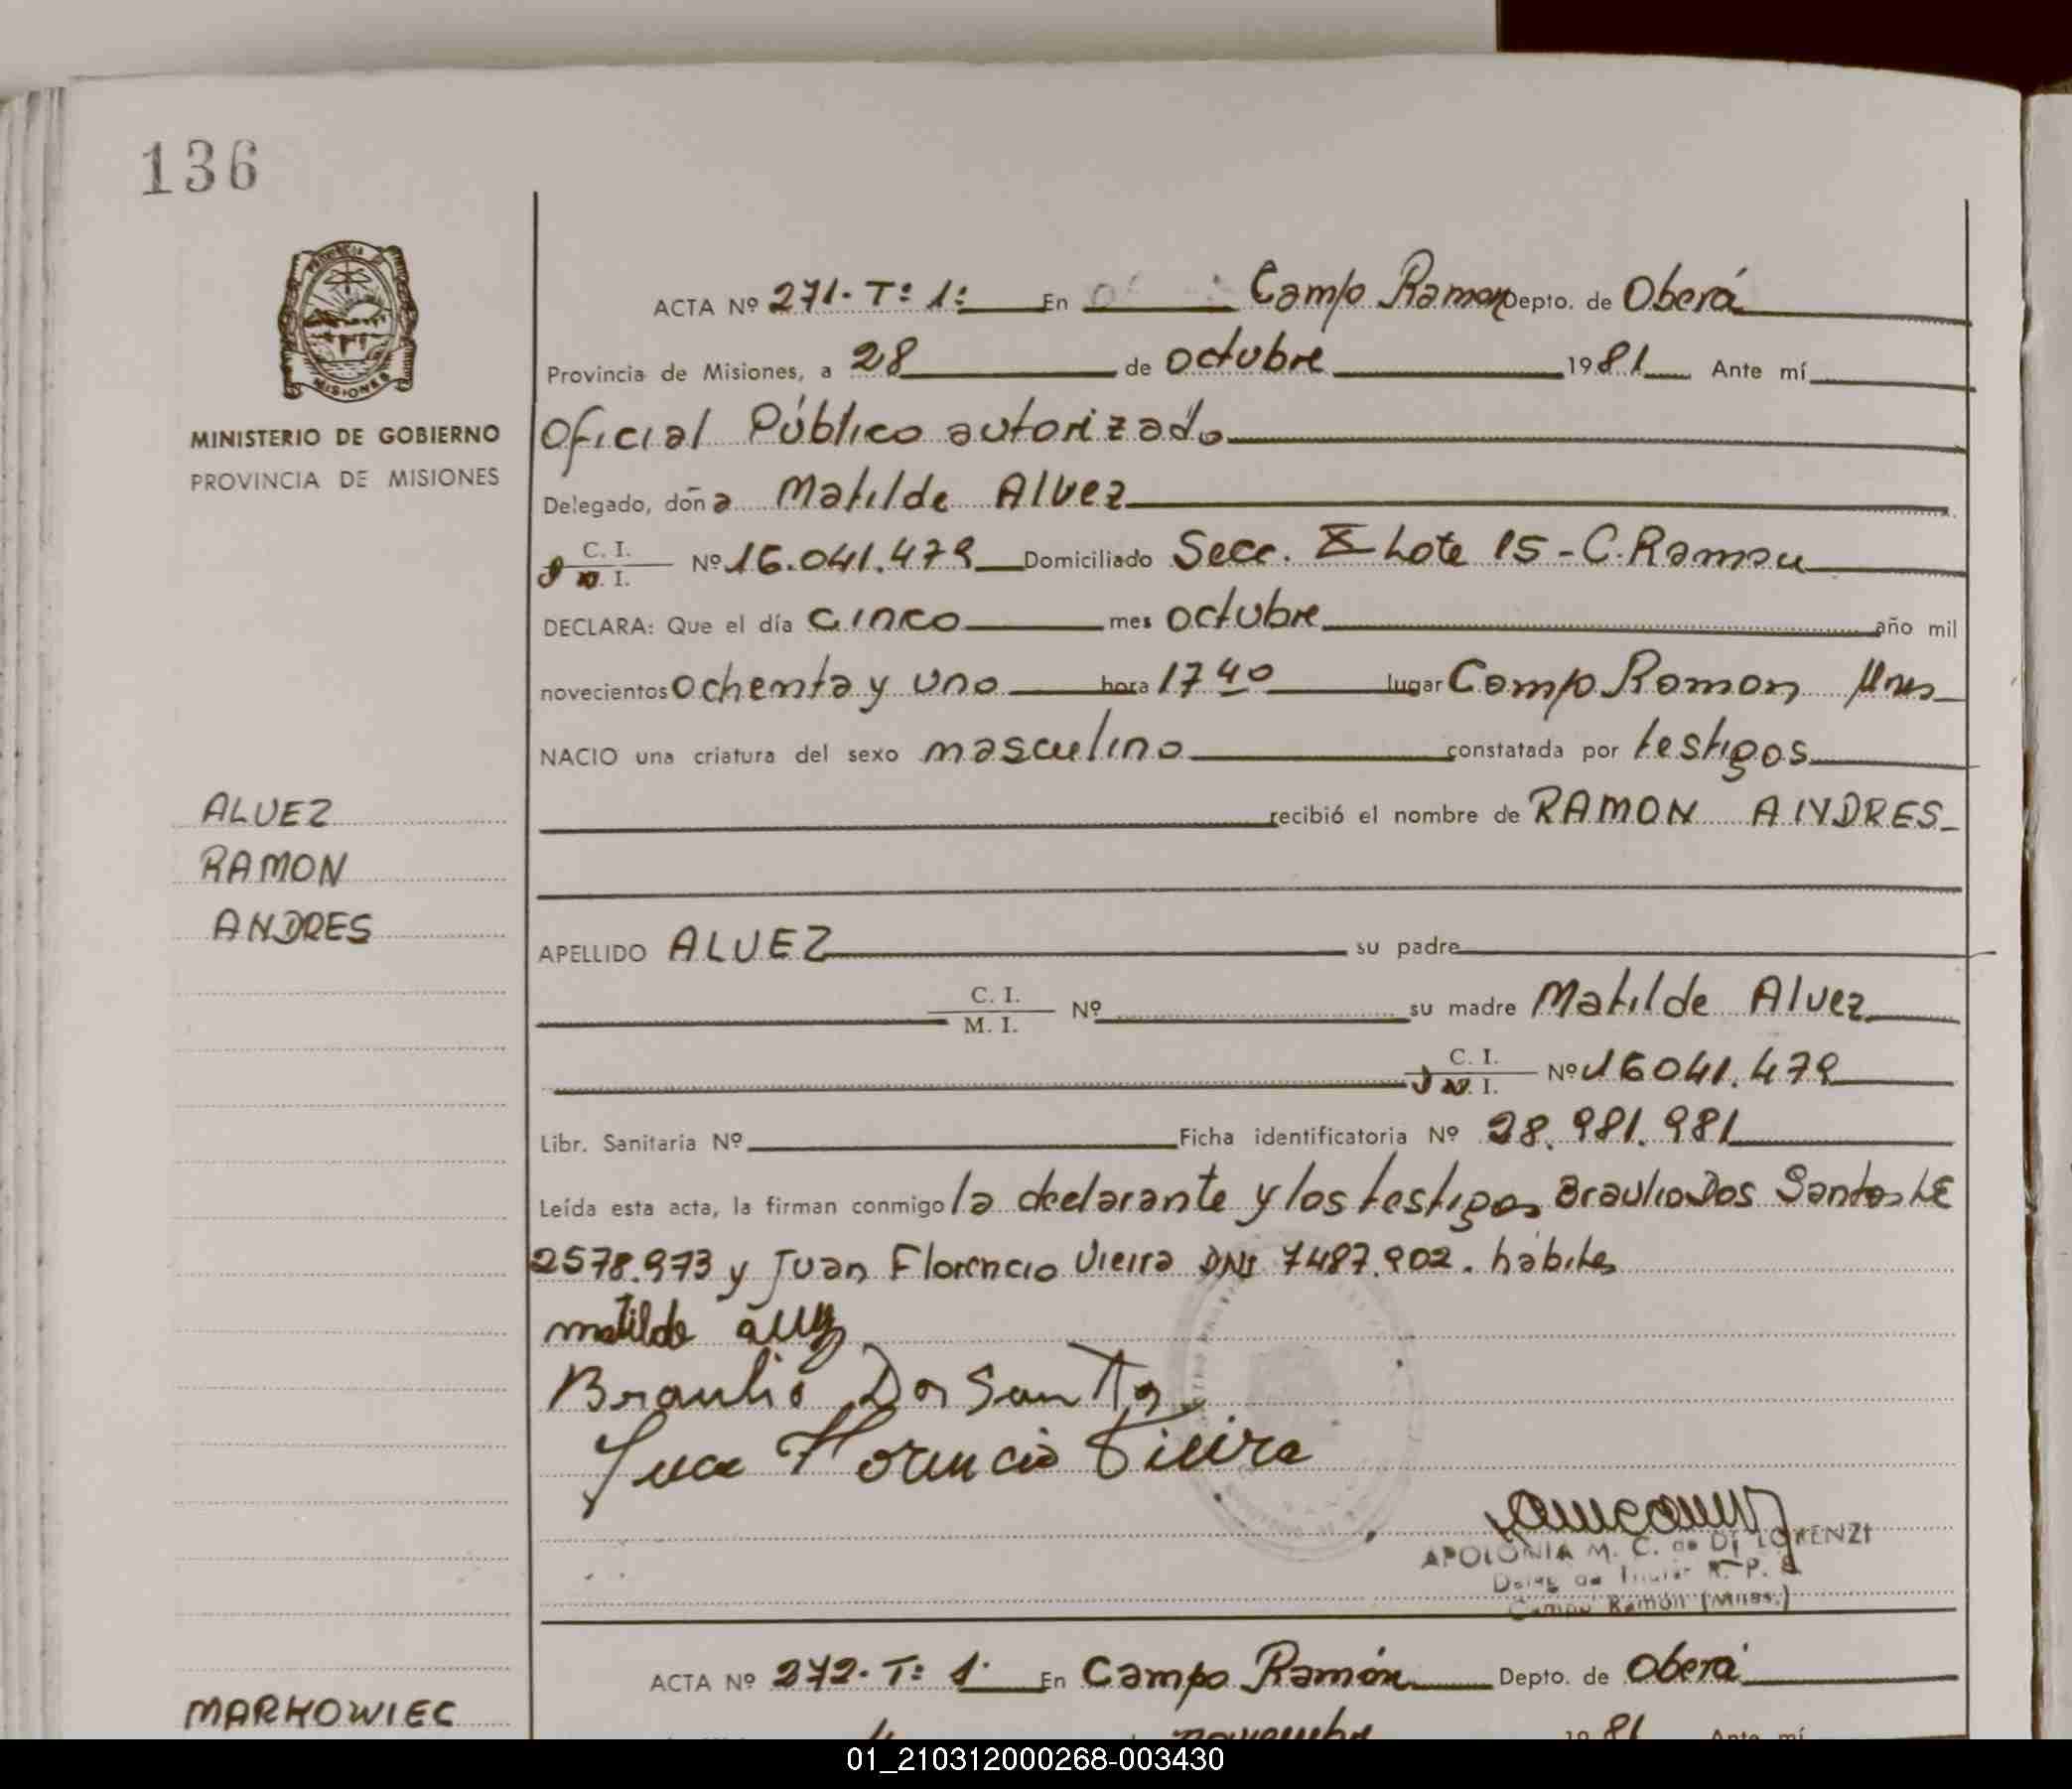 136
MISIONES
MINISTERIO DE GOBIERNO
PROVINCIA DE MISIONES
ALVEZ
RAMON
ANDRES
ACTA Nº 271. Tº 1º En Campo Ramon Depto. de Oberá
Provincia de Misiones, a 28 de octubre 1981 Ante mí
Oficial Público autorizado
Delegado, doña Matilde Alvez
C. I.
D N. I. Nº 16.041.479 Domiciliado Secc. X Lote 15 - C. Ramon
DECLARA: Que el día cinco mes octubre año mil
novecientos ochenta y uno hora 17 40 lugar Campo Ramon Mnes
NACIO una criatura del sexo masculino constatada por testigos
recibió el nombre de RAMON ANDRES
APELLIDO ALVEZ su padre
C. I.
M. I. Nº su madre Matilde Alvez
C. I.
D N. I. Nº 16041.479
Libr. Sanitaria Nº Ficha identificatoria Nº 28.981.981
Leída esta acta, la firman conmigo la declarante y los testigos Braulio Dos Santos LE
2578.973 y Juan Florencio Vieira DNI 7487.902. hábiles
matilde
Braulio Dos Santos
Juan Florencio Vieira
APOLONIA M. C. de DI LORENZI
R. P.
Campo Ramón (Mnes.)
ACTA Nº 272. Tº 1º En Campo Ramón Depto. de Oberá
MARKOWIEC
noviembre 1981 Ante mí
01_210312000268-003430